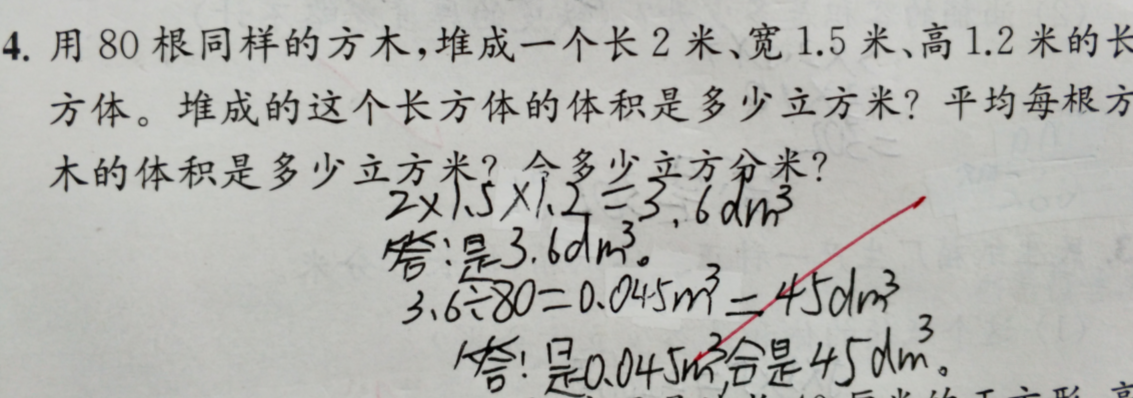 4. 用 80 根同样的方木,堆成一个长 2 米、宽 1.5 米、高 1.2 米的长
方体。堆成的这个长方体的体积是多少立方米? 平均每根方
木的体积是多少立方米? 合多少立方分米?
2×1.5×1.2=3.6dm³
答:是3.6dm³。
3.6÷80=0.045m³=45dm³
答:是0.045m³,合是45dm³。